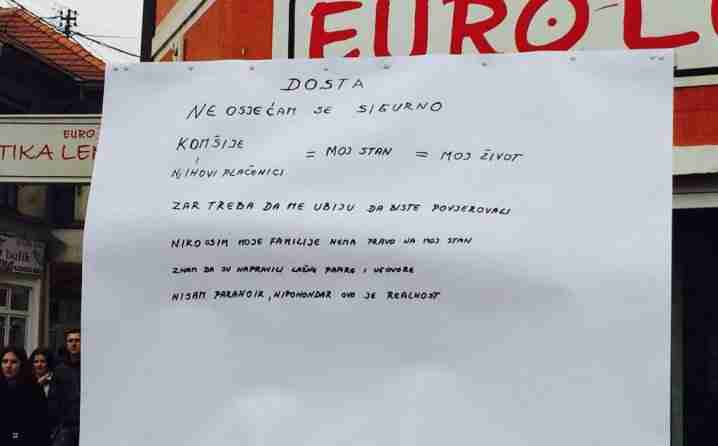 EURO-L
EURO
TIKA LEN
balik
DOSTA
NE OSJEĆAM SE SIGURNO
KOMŠIJE
I
NJIHOVI PLAĆENICI
= MOJ STAN = MOJ ŽIVOT
ZAR TREBA DA ME UBIJU DA BISTE POVJEROVALI
NIKO OSIM MOJE FAMILIJE NEMA PRAVO NA MOJ STAN
ZNAM DA SU NAPRAVILI LAŽNE PAPIRE I UGOVORE
NISAM PARANOIK, HIPOHONDAR OVO JE REALNOST